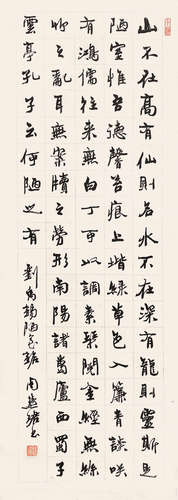 山不在高有仙則名水不在深有龍則靈斯是
陋室惟吾德馨苔痕上堦綠草色入簾青談咲
有鴻儒往來無白丁可以調素琴閱金經無絲
竹之亂耳無案牘之勞形南陽諸葛廬西蜀子
雲亭孔子云何陋之有
劉禹錫陋室銘 周慧珺書